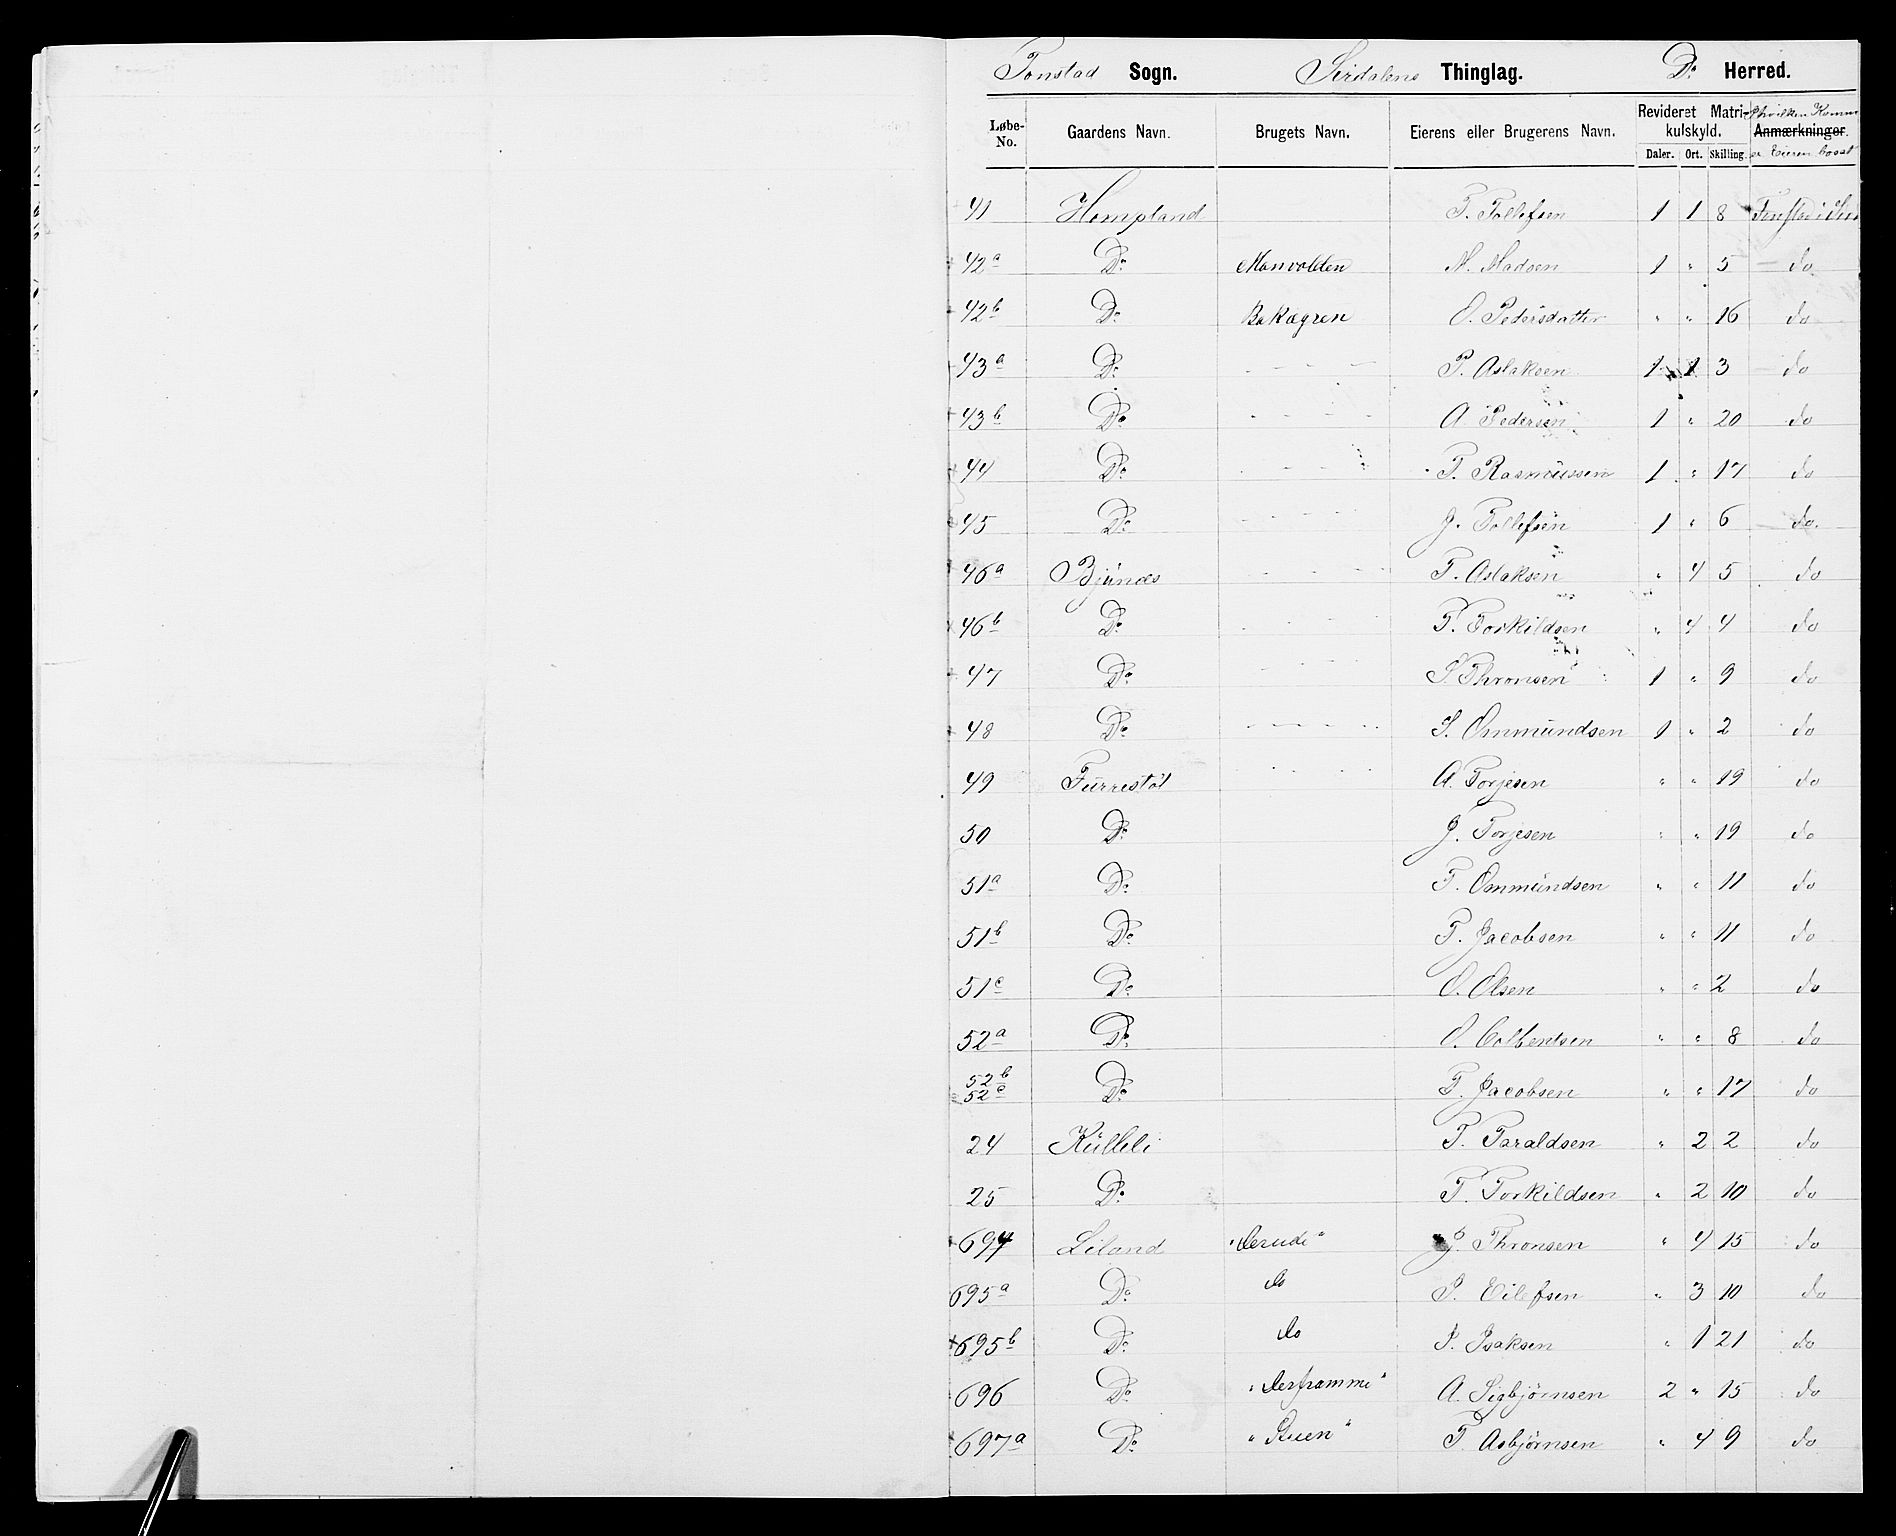 Tonstad Sogn. Sirdalens Thinglag. Do Herred.
Løbe-No. Gaardens Navn. Brugets Navn. Eierens eller Brugerens Navn. Revideret Matrikulskyld. Daler. Ort. Skilling. Anmærkninger.
41 Hompland T. Tollefsen 1 1 8 Tonstad i
42a Do Monvolden M. Madsen 1 " 5 do
42b Do Bakagren O. Pedersdatter " " 16 do
43a Do - - - - P. Aslaksen 1 1 3 do
43b Do - - - - A. Pedersen 1 " 20 do
44 Do - - - - T. Rasmussen 1 " 17 do
45 Do - - - - J. Tollefsen 1 " 6 do
46a Bjunes - - - - T. Aslaksen " 4 5 do
46b Do - - - - T. Torkildsen " 4 4 do
47 Do - - - - S. Thronsen 1 " 9 do
48 Do - - - - S. Ommundsen 1 " 2 do
49 Furrestøl - - - - A. Torjesen " " 19 do
50 Do J. Torjesen " " 19 do
51a Do T. Ommundsen " " 11 do
51b Do T. Jacobsen " " 11 do
51c Do O. Olsen " " 2 do
52a Do O. Colbentsen " " 8 do
52b
52c Do T. Jacobsen " " 17 do
24 Kulleli T. Taraldsen " 2 2 do
25 Do T. Torkildsen " 2 10 do
694 Liland J. Thronsen " 4 15 do
695a Do do P. Eilefsen " 3 10 do
695b Do do P. Isaksen " 1 21 do
696 Do A. Sigbjørnsen 2 " 15 do
697a Do "Stuen" T. Asbjørnsen " 4 9 do